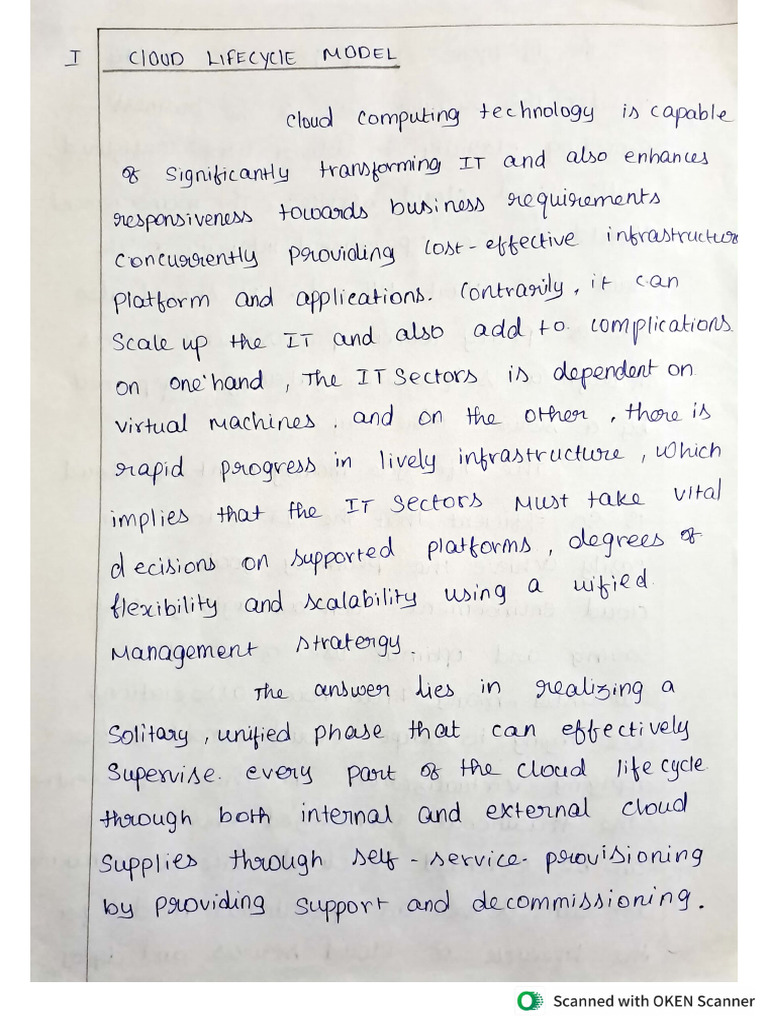 I CLOUD LIFECYCLE MODEL
Cloud computing technology is capable
of significantly transforming IT and also enhances
responsiveness towards business requirements
concurrently providing cost-effective infrastructure
platform and applications. Contrarily, it can
scale up the IT and also add to complications.
on one hand, The IT Sectors is dependent on
virtual machines. and on the other, there is
rapid progress in lively infrastructure, which
implies that the IT Sectors must take vital
decisions on supported platforms, degrees of
flexibility and scalability using a uified
Management stratergy.
The answer lies in realizing a
Solitary, unified phase that can effectively
Supervise. every part of the cloud life cycle
through both internal and external cloud
Supplies through self-service-provisioning
by providing support and decommissioning.
Scanned with OKEN Scanner